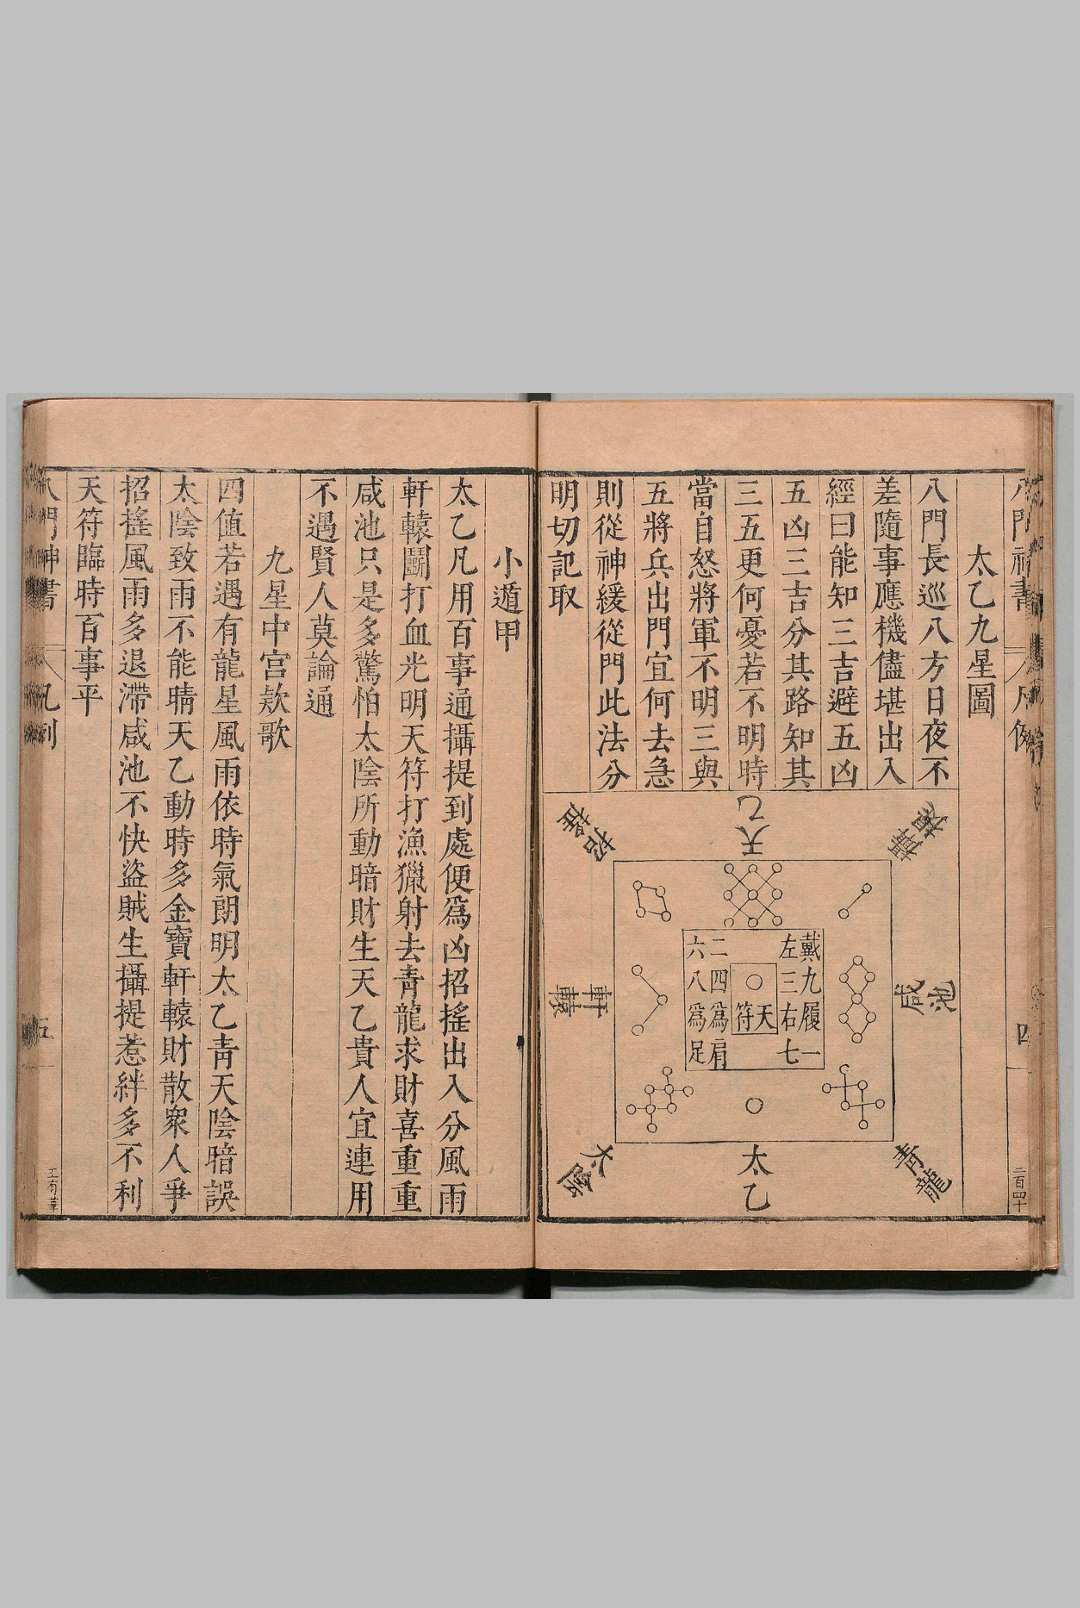 太乙九星圖
八門長巡八方日夜不
差隨事應機儘堪出入
經曰能知三吉避五凶
五凶三吉分其路知其
三五更何憂若不明時
當自怒將軍不明三與
五將兵出門宜何去急
則從神緩從門此法分
明切記取
天乙
招搖
咸池
軒轅
青龍
太乙
太陰
戴九履一
左三右七
二四爲肩
六八爲足
天符
四
二百四十
小遁甲
太乙凡用百事通攝提到處便爲凶招搖出入分風雨
軒轅鬭打血光明天符打漁獵射去靑龍求財喜重重
咸池只是多驚怕太陰所動暗財生天乙貴人宜連用
不遇賢人莫論通
九星中宮欵歌
四值若遇有龍星風雨依時氣朗明太乙靑天陰暗誤
太陰致雨不能晴天乙動時多金寶軒轅財散衆人爭
招搖風雨多退滯咸池不快盜賊生攝提惹絆多不利
天符臨時百事平
八門神書
凡例
五